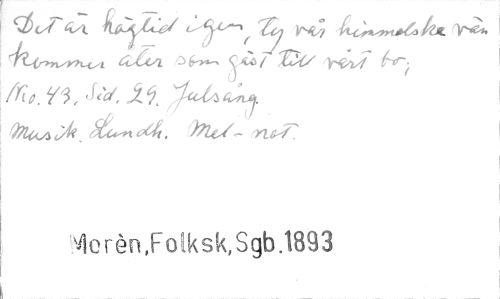 Det är högtid igen, ty vår himmelske vän
kommer åter som gäst till vårt bo;
No. 43. Sid. 29. Julsång.
Musik. Lundh. Mel-not.
Morèn,Folksk,Sgb.1893